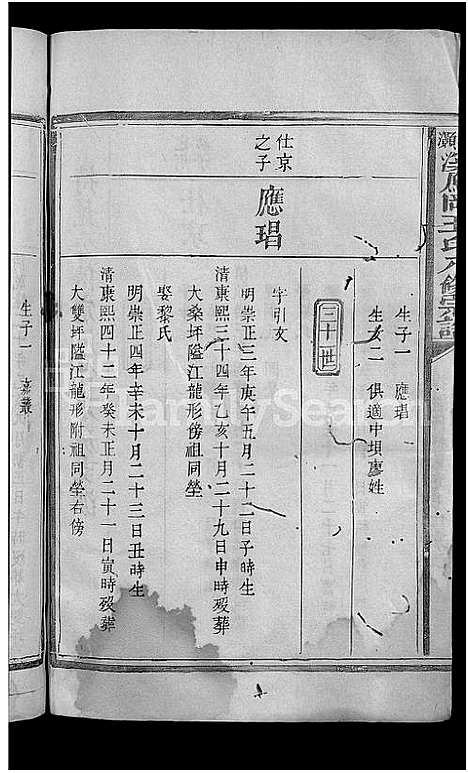 生子一 應琩
生女二 俱適中埧廖姓
三十世
仕京
之子
應琩
字引文
明崇正三年庚午五月二十二日子時生
清康熙三十四年乙亥十月二十九日申時歿葬
大桑坪隘江龍形傍祖同塋
娶黎氏
明崇正四年辛未十月二十三日丑時生
清康熙四十二年癸未正月二十一日寅時歿葬
大雙坪隘江龍形附祖同塋右傍
生子一 嘉叢
FamilySearch